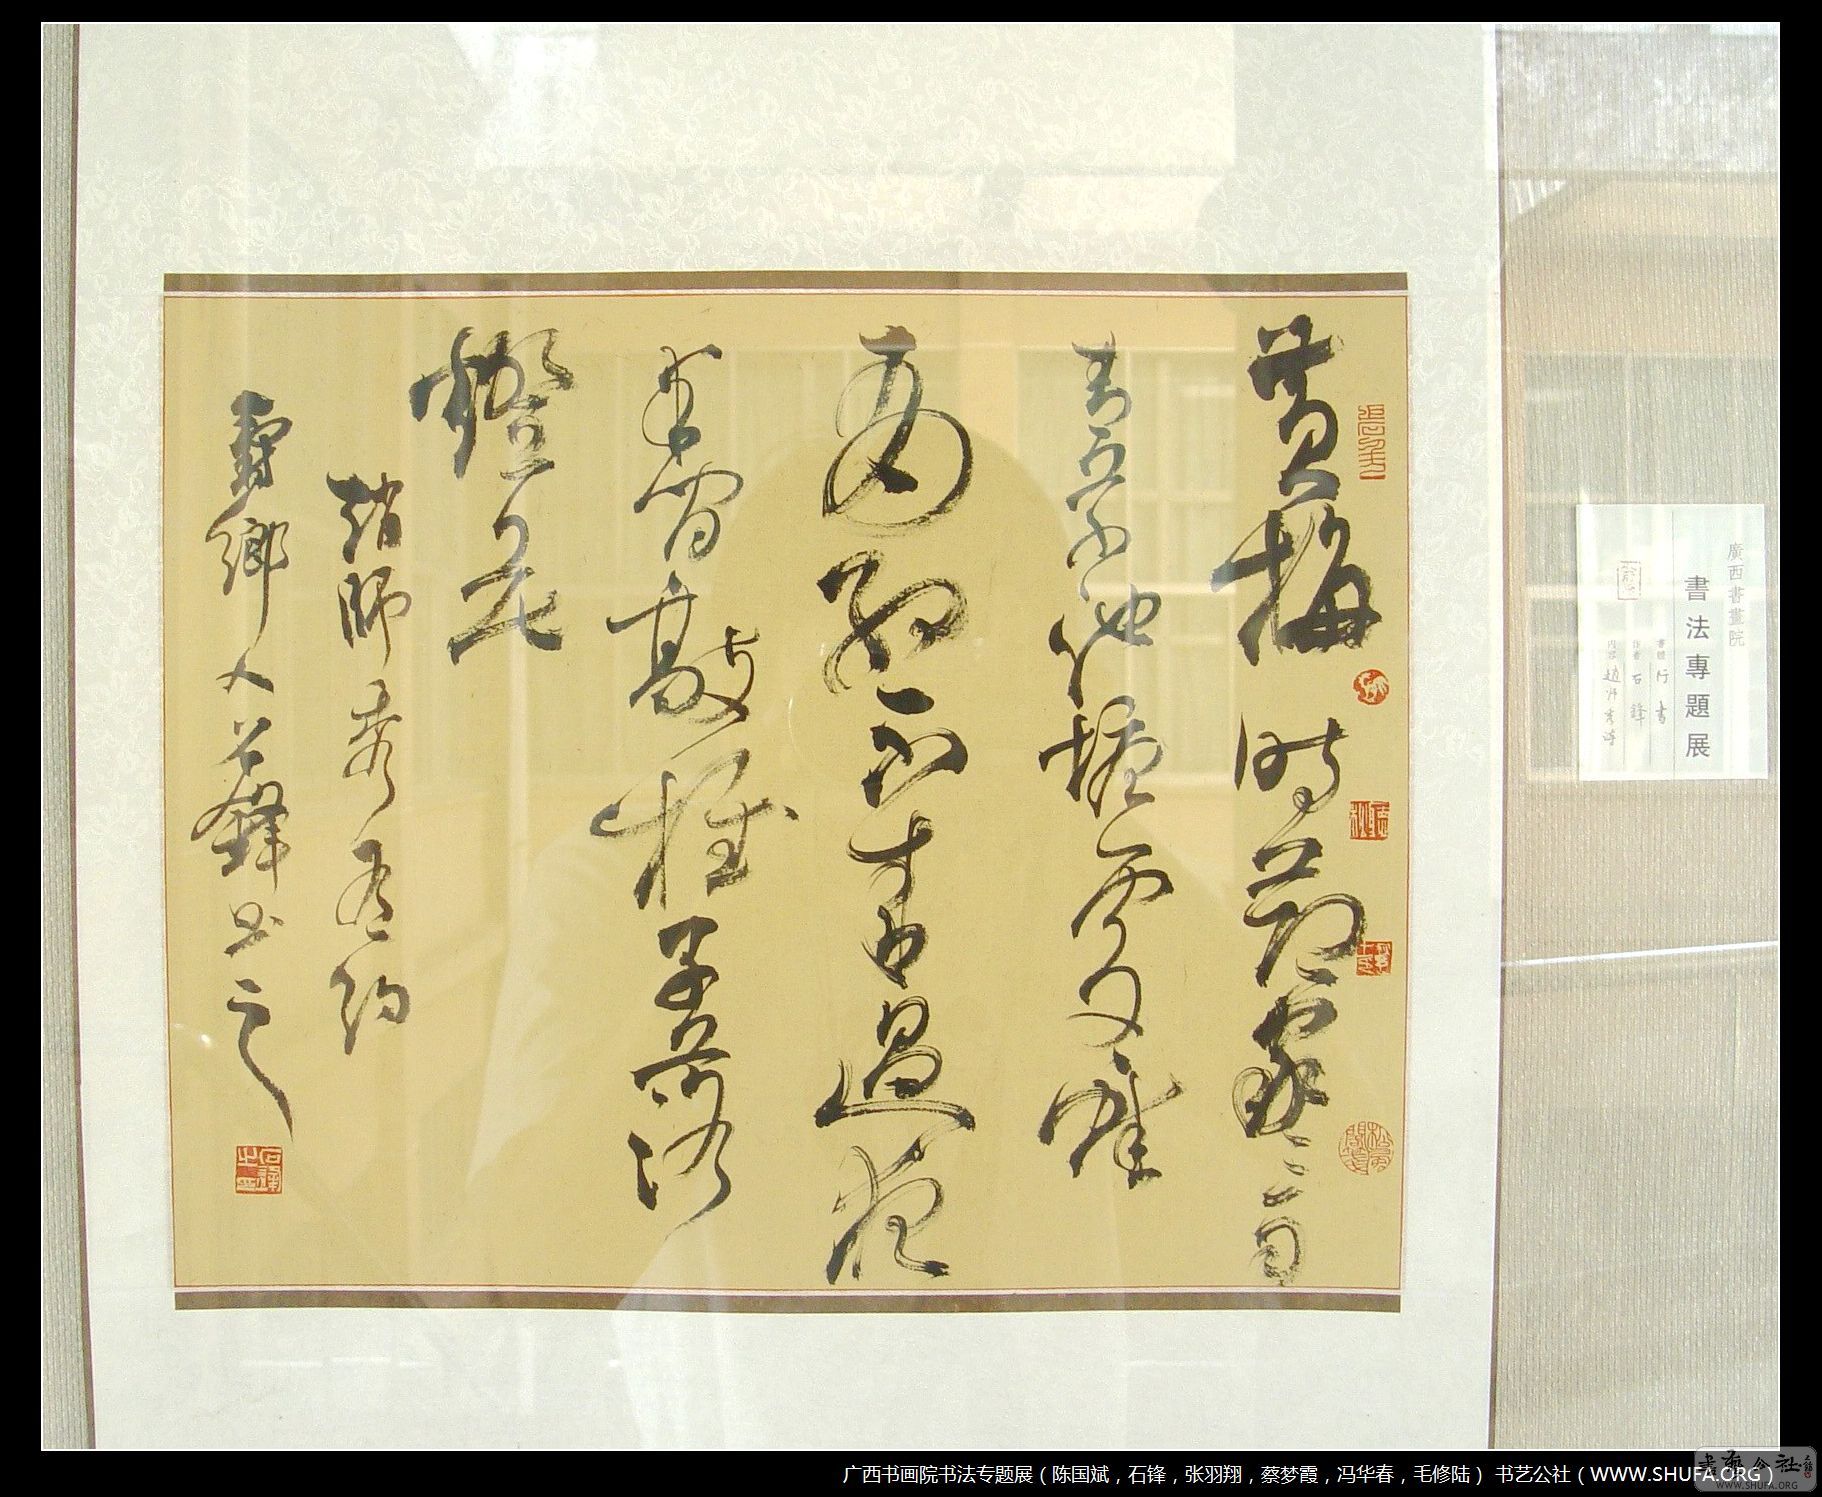 黄梅時節家〻雨
青草池塘處〻蛙
有約不来過夜
半閒敲棋子落
燈花
趙師秀有約
靈鄉人石鋒书之
廣西書畫院
書法專題展
書體 行書
作者 石鋒
内容 趙師秀詩
广西书画院书法专题展（陈国斌，石锋，张羽翔，蔡梦霞，冯华春，毛修陆） 书艺公社（WWW.SHUFA.ORG）
書藝公社
WWW.SHUFA.ORG